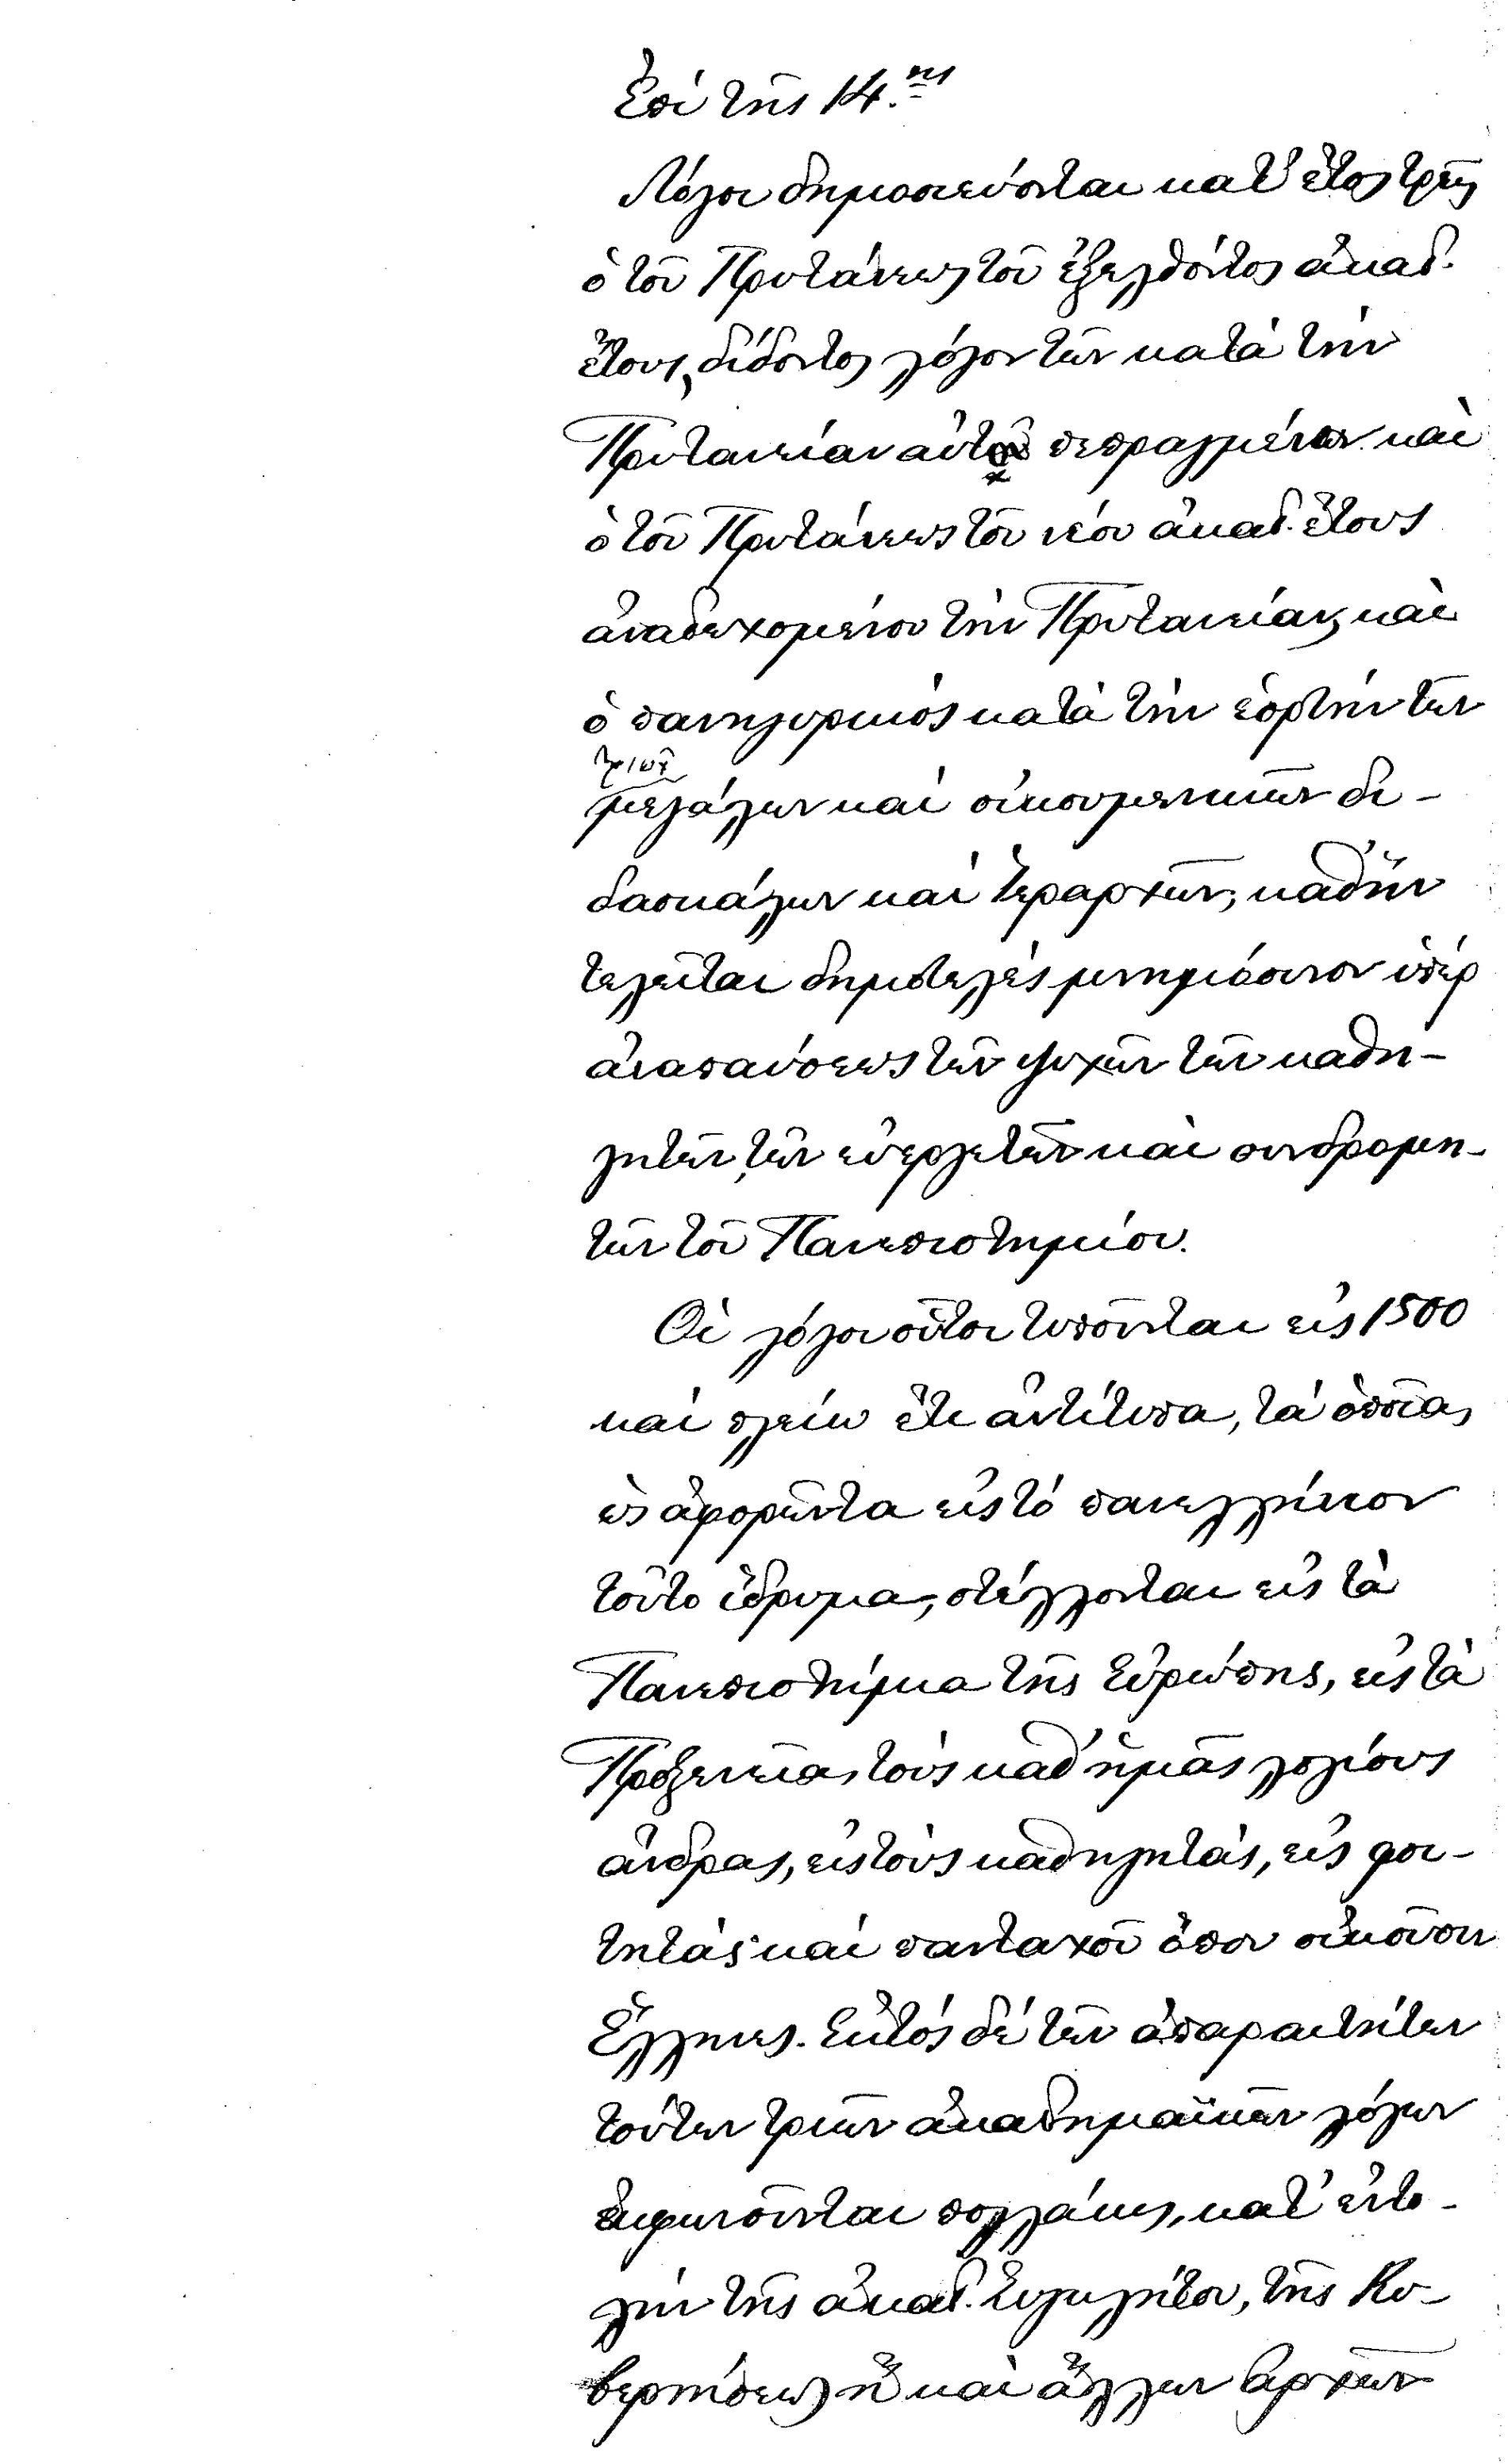 Ἐπὶ τῆς 14.ης
Λόγοι δημοσιεύονται κατ' ἔτος τρεῖς
ὁ τοῦ Πρυτάνεως τοῦ ἐξελθόντος ἀκαδ.
ἔτους, δίδοντος λόγον τῶν κατὰ τὴν
Πρυτανείαν αὐτοῦ πεπραγμένων καὶ
ὁ τοῦ Πρυτάνεως τοῦ νέου ἀκαδ. ἔτους
ἀναδεχομένου τὴν Πρυτανείαν, καὶ
ὁ πανηγυρικὸς κατὰ τὴν ἑορτὴν τῶν
τριῶν
μεγάλων καὶ οἰκουμενικῶν δι-
δασκάλων καὶ Ἱεραρχῶν, καθ' ἣν
τελεῖται δημοτελὲς μνημόσυνον ὑπὲρ
ἀναπαύσεως τῶν ψυχῶν τῶν καθη-
γητῶν, τῶν εὐεργετῶν καὶ συνδρομη-
τῶν τοῦ Πανεπιστημίου.
Οἱ λόγοι οὗτοι τυποῦνται εἰς 1500
καὶ πλείω ἔτι ἀντίτυπα, τὰ ὁποῖα,
ὡς ἀφορῶντα εἰς τὸ πανελλήνιον
τοῦτο ἵδρυμα, στέλλονται εἰς τὰ
Πανεπιστήμια τῆς Εὐρώπης, εἰς τὰ
Προξενεῖα, τοὺς καθ' ἡμᾶς λογίους
ἄνδρας, εἰς τοὺς καθηγητάς, εἰς φοι-
τητάς καὶ πανταχοῦ ὅπου οἰκοῦσιν
Ἕλληνες. Ἐκτὸς δὲ τῶν ἀπαραιτήτων
τούτων τριῶν ἀκαδημαϊκῶν λόγων
ἐκφωνοῦνται πολλάκις, κατ' ἐντο-
λὴν τῆς ἀκαδ. Συγκλήτου, τῆς Κυ-
βερνήσεως ἢ καὶ ἄλλων Ἀρχῶν